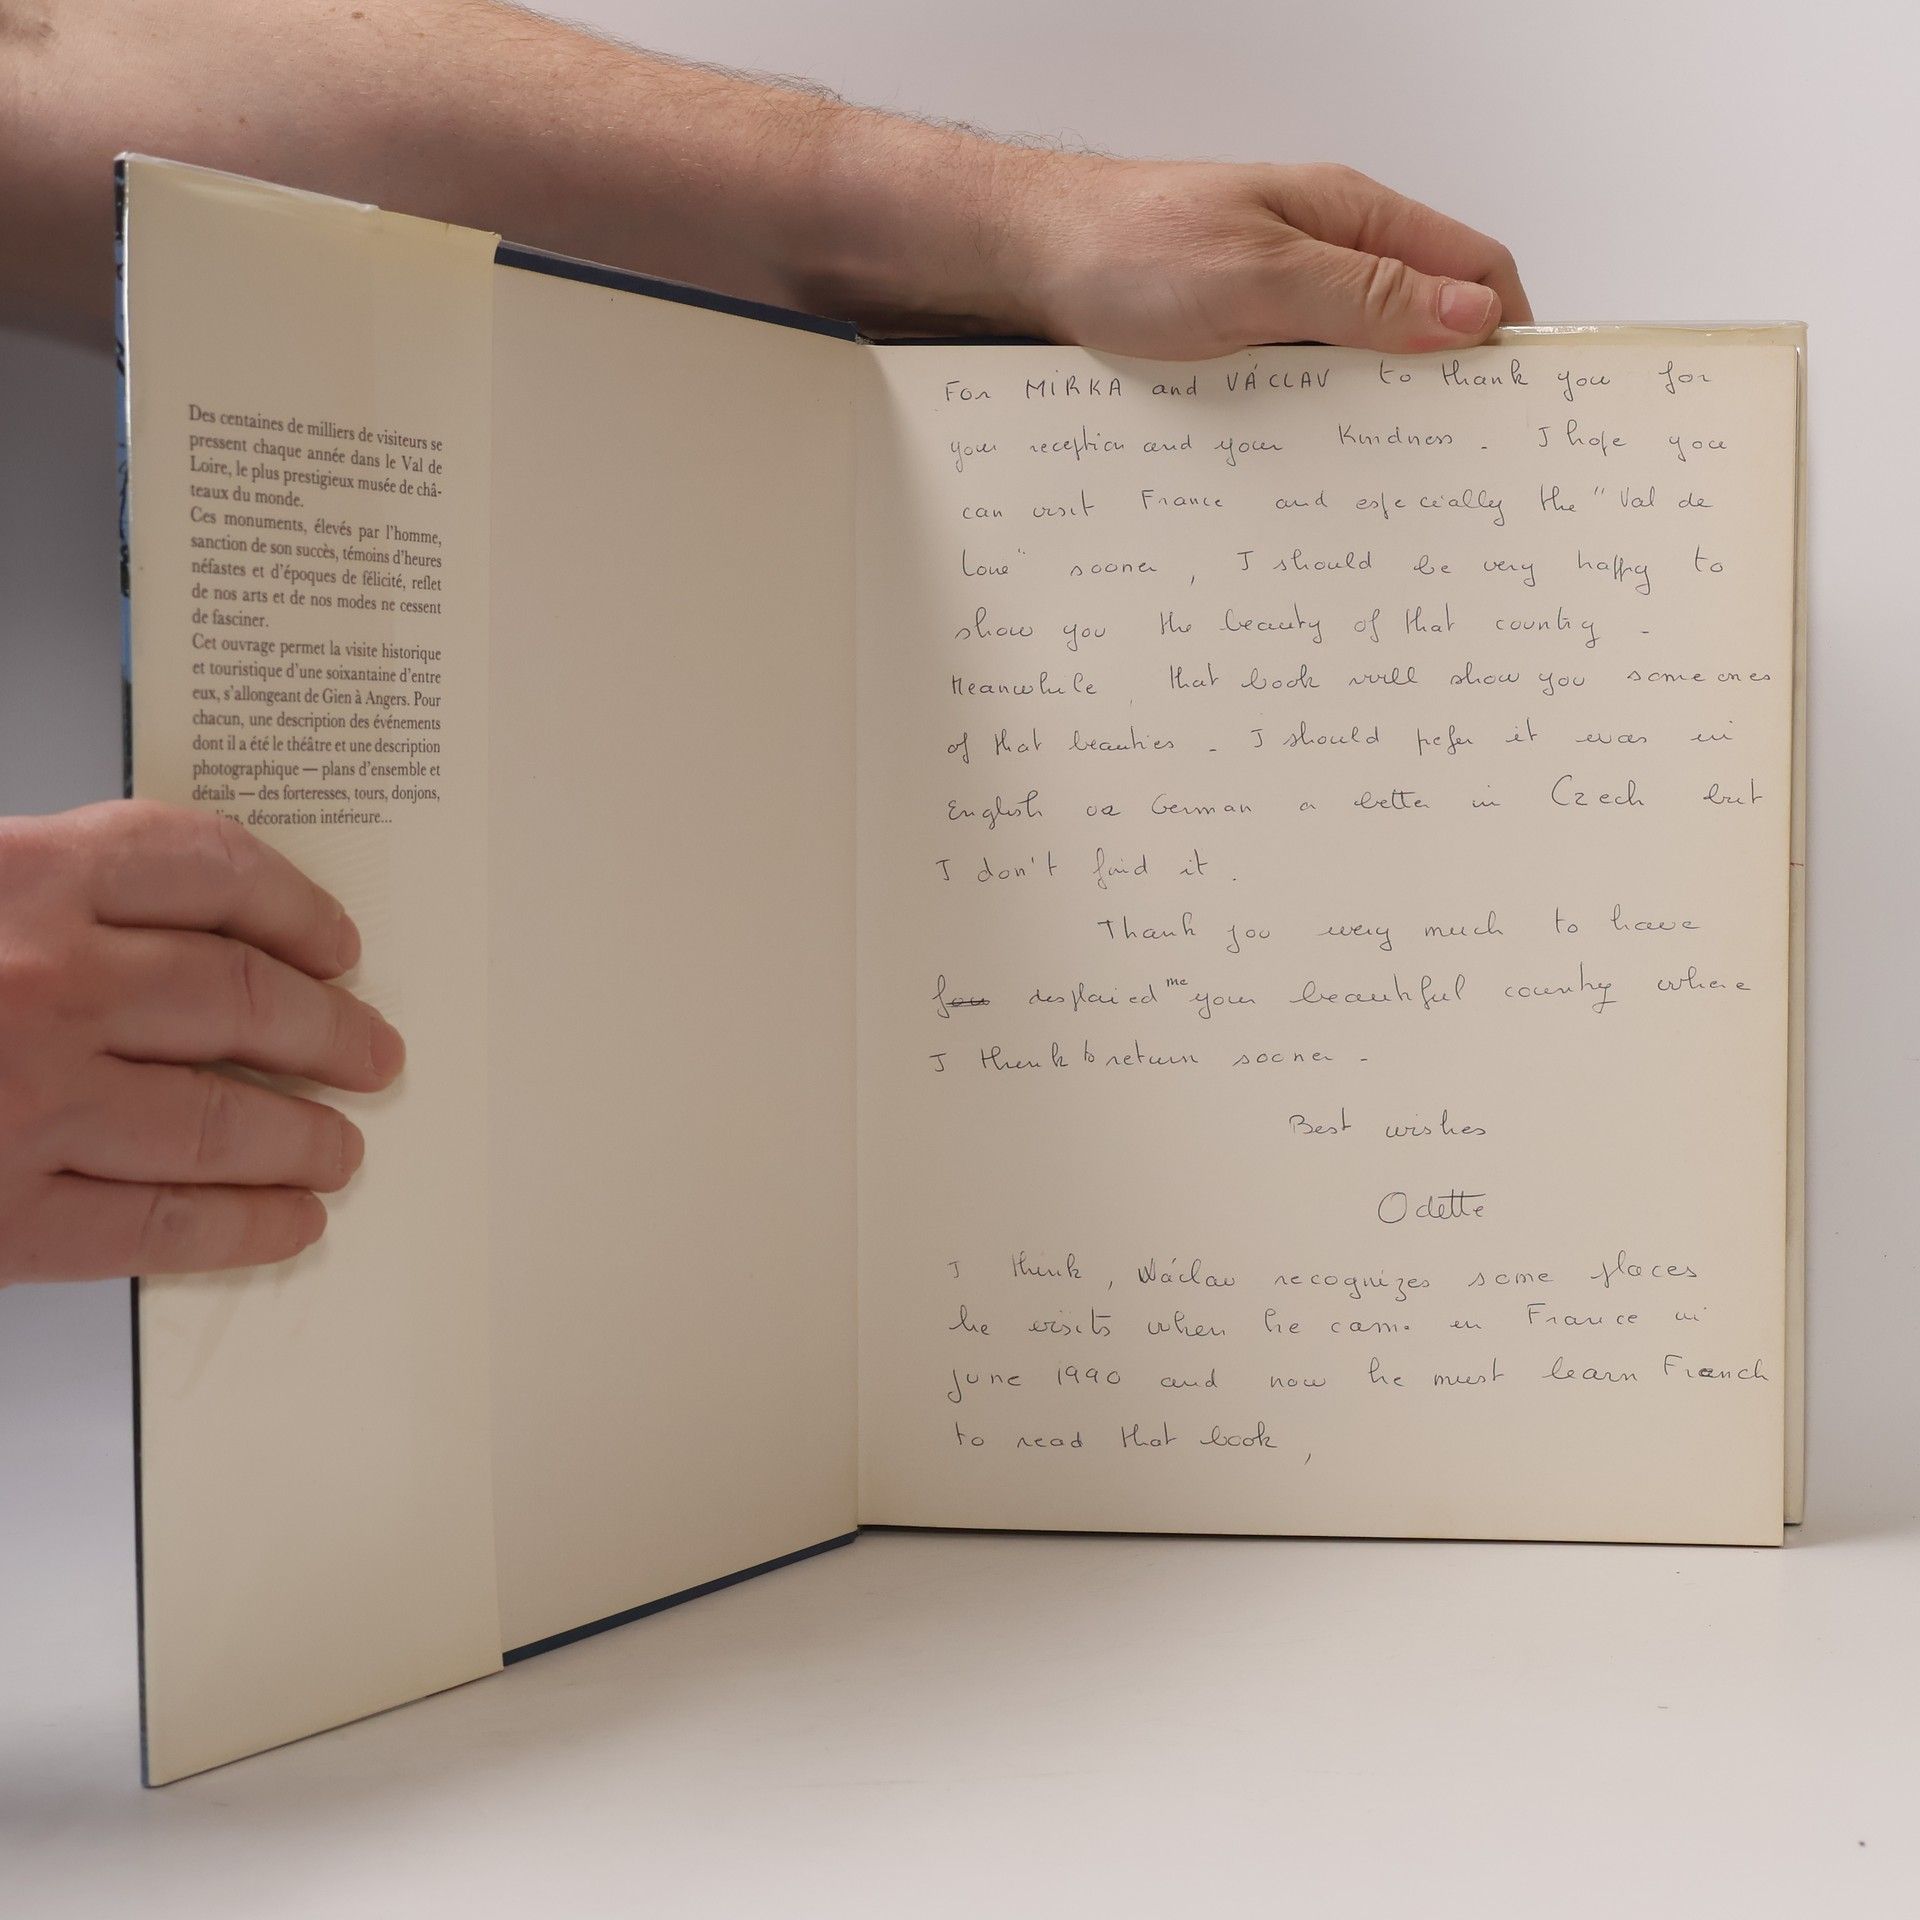 Des centaines de milliers de visiteurs se
pressent chaque année dans le Val de
Loire, le plus prestigieux musée de châ-
teaux du monde.
Ces monuments, élevés par l'homme,
sanction de son succès, témoins d'heures
néfastes et d'époques de félicité, reflet
de nos arts et de nos modes ne cessent
de fasciner.
Cet ouvrage permet la visite historique
et touristique d'une soixantaine d'entre
eux, s'allongeant de Gien à Angers. Pour
chacun, une description des événements
dont il a été le théâtre et une description
photographique — plans d'ensemble et
détails — des forteresses, tours, donjons,
décoration intérieure...
For MIRKA and VÁCLAV to thank you for
your reception and your Kindness - I hope you
can visit France and especially the "Val de
Loire" sooner, I should be very happy to
show you the beauty of that country -
Meanwhile that book will show you some ones
of that beauties - I should prefer it was in
English or German a better in Czech but
I don't find it.
Thank you very much to have
desplaied me your beautiful country where
I think to return sooner -
Best wishes
Odette
I think, Václav recognizes some places
he visits when he came en France in
June 1990 and now he must learn French
to read that book,